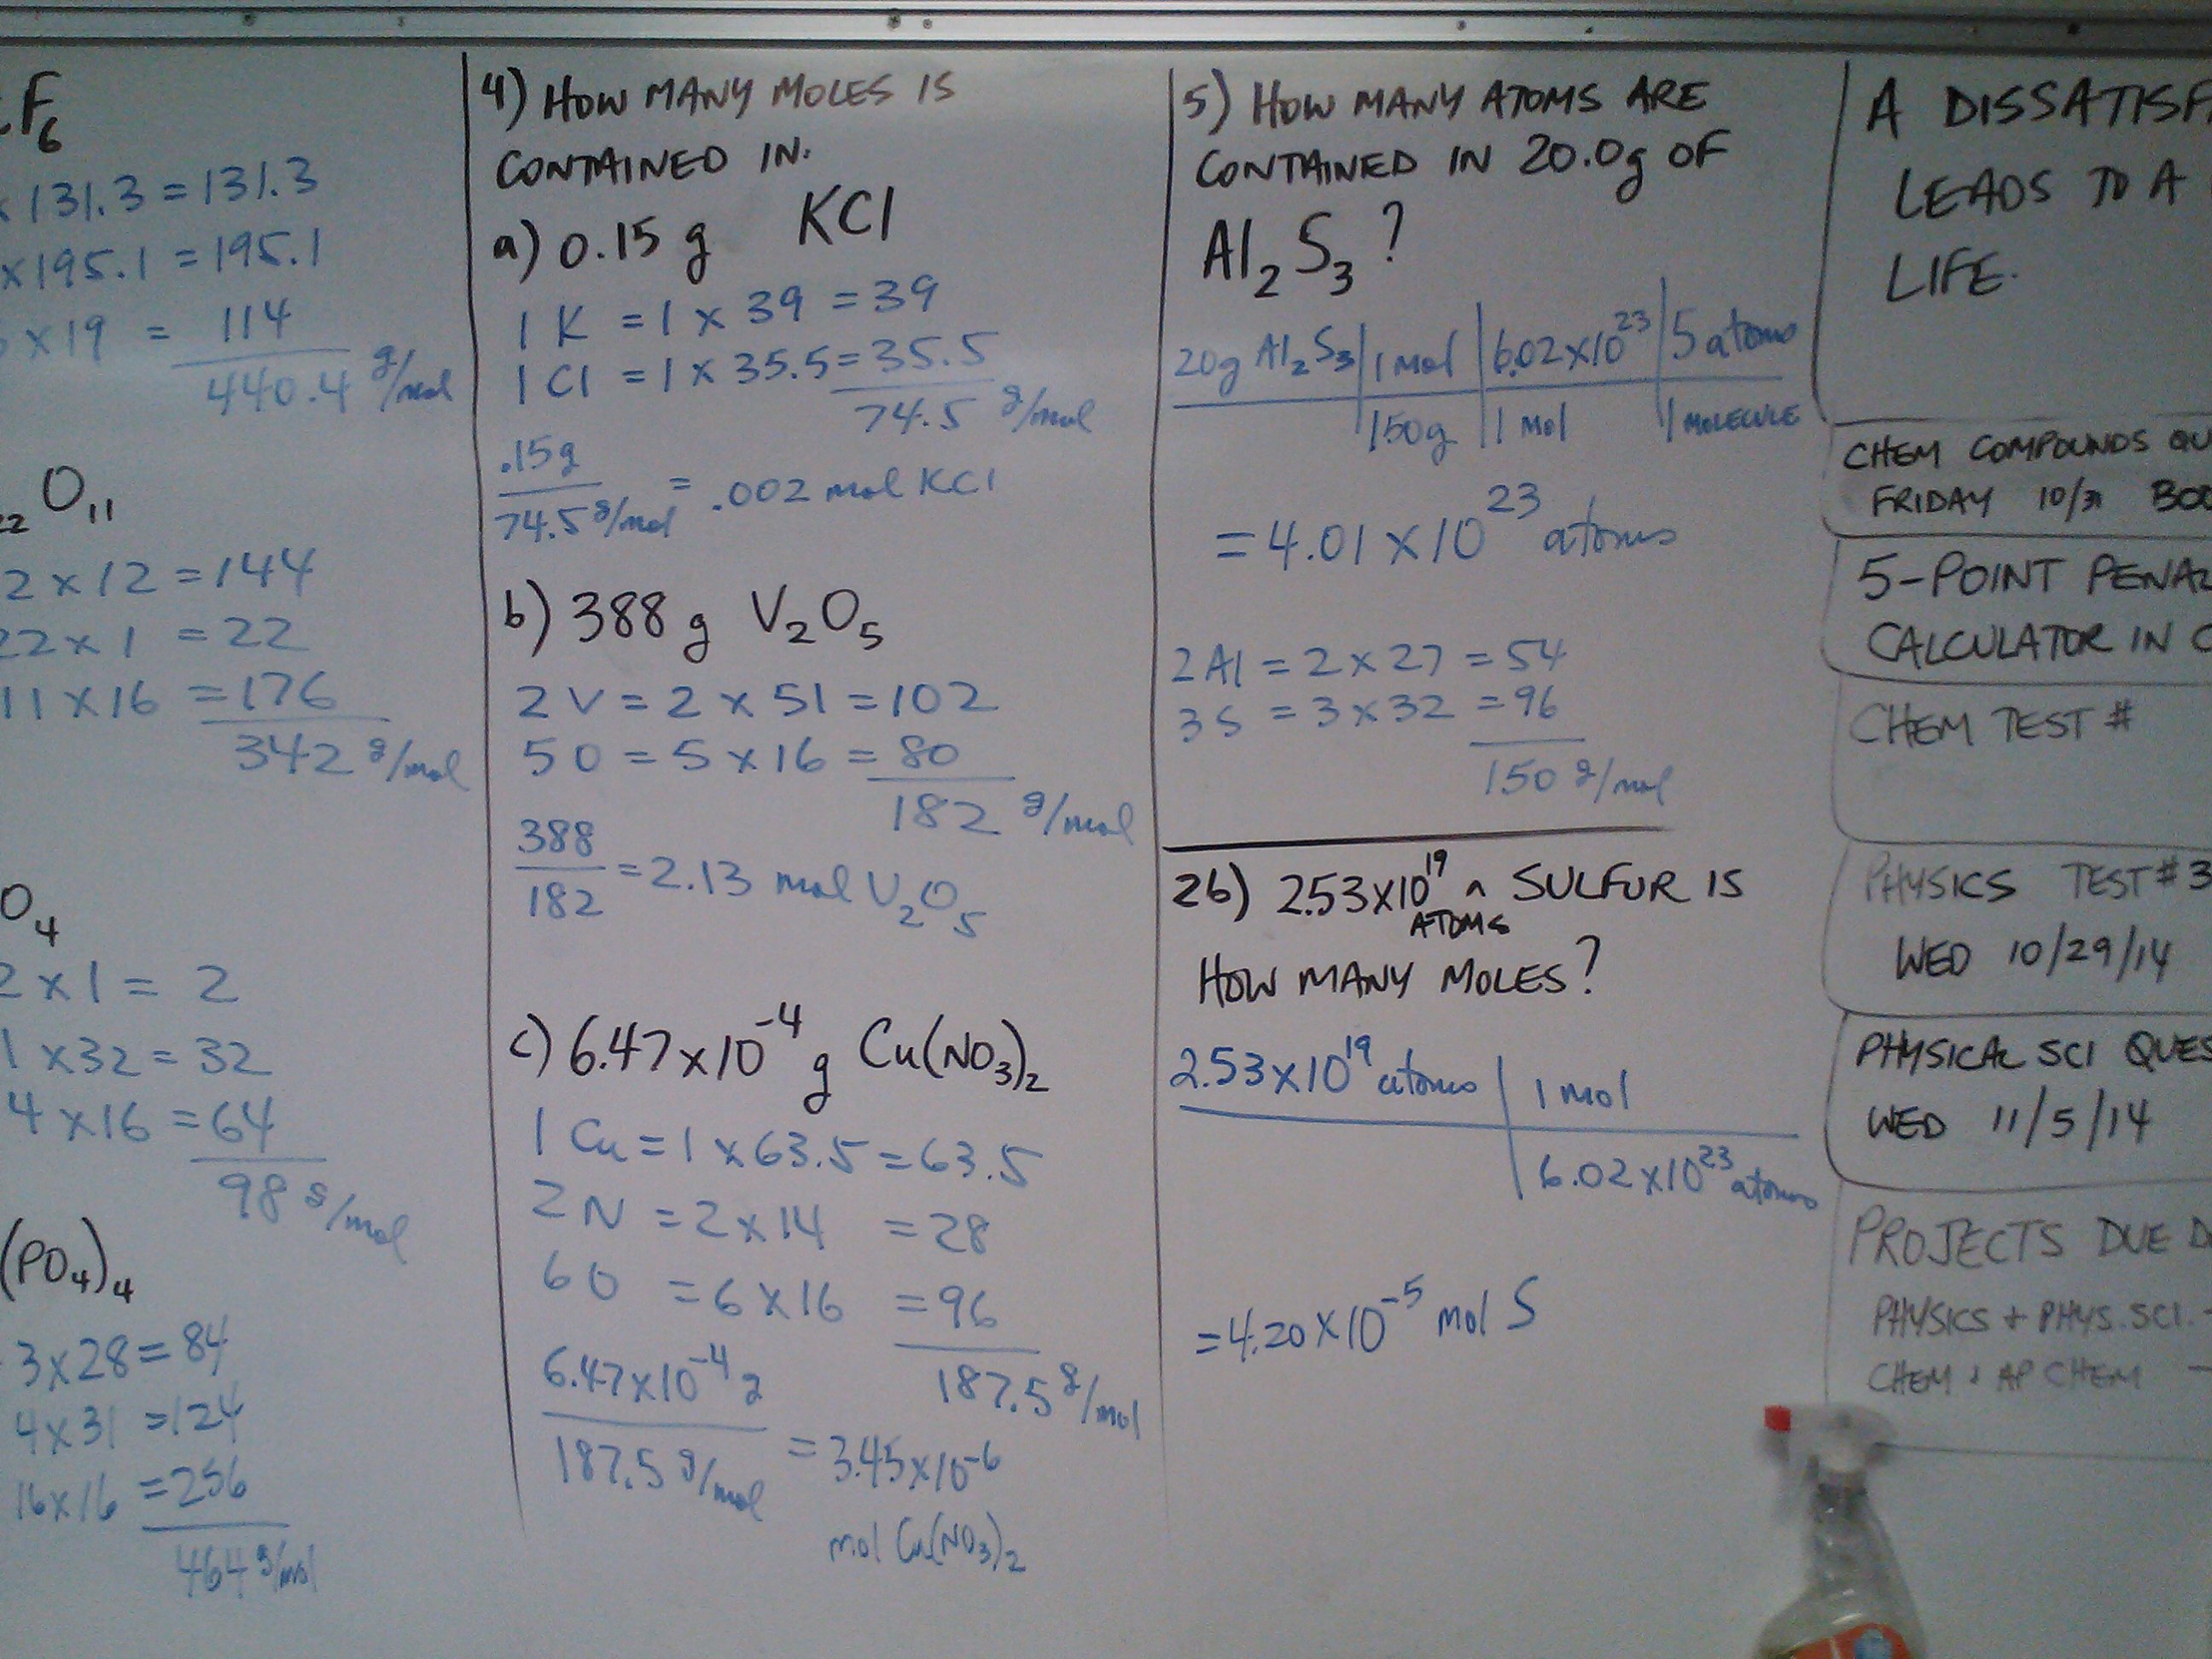 F6
x 131.3 = 131.3
x 195.1 = 195.1
x 19 = 114
440.4 g/mol
22 O11
2 x 12 = 144
22 x 1 = 22
11 x 16 = 176
342 g/mol
O4
2 x 1 = 2
1 x 32 = 32
4 x 16 = 64
98 g/mol
(PO4)4
3 x 28 = 84
4 x 31 = 124
16 x 16 = 256
464 g/mol
4) HOW MANY MOLES IS
CONTAINED IN:
a) 0.15 g KCl
1 K = 1 x 39 = 39
1 Cl = 1 x 35.5 = 35.5
74.5 g/mol
.15g
74.5 g/mol = .002 mol KCl
b) 388 g V2O5
2 V = 2 x 51 = 102
5 O = 5 x 16 = 80
182 g/mol
388
182 = 2.13 mol V2O5
c) 6.47 x 10^-4 g Cu(NO3)2
1 Cu = 1 x 63.5 = 63.5
2 N = 2 x 14 = 28
6 O = 6 x 16 = 96
187.5 g/mol
6.47 x 10^-4 g
187.5 g/mol = 3.45 x 10^-6
mol Cu(NO3)2
5) HOW MANY ATOMS ARE
CONTAINED IN 20.0g OF
Al2S3?
20g Al2S3 | 1 mol | 6.02 x 10^23 | 5 atoms
150g | 1 mol | 1 MOLECULE
= 4.01 x 10^23 atoms
2 Al = 2 x 27 = 54
3 S = 3 x 32 = 96
150 g/mol
26) 2.53 x 10^19 ^ SULFUR IS
ATOMS
HOW MANY MOLES?
2.53 x 10^19 atoms | 1 mol
6.02 x 10^23 atoms
= 4.20 x 10^-5 mol S
A DISSATISF
LEADS TO A
LIFE.
CHEM COMPOUNDS QU
FRIDAY 10/31 BO
5-POINT PENAL
CALCULATOR IN C
CHEM TEST #
PHYSICS TEST #3
WED 10/29/14
PHYSICAL SCI QUES
WED 11/5/14
PROJECTS DUE D
PHYSICS + PHYS. SCI. -
CHEM + AP CHEM -